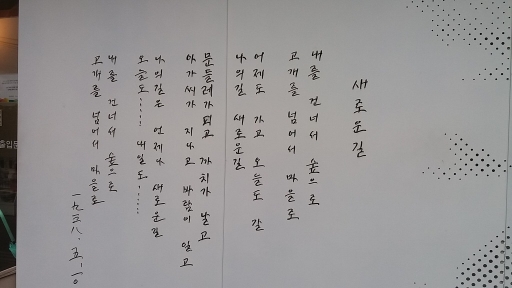 새로운 길
내를 건너서 숲으로
고개를 넘어서 마을로
어제도 가고 오늘도 갈
나의 길 새로운 길
문들레가 피고 까치가 날고
아가씨가 지나고 바람이 일고
나의 길은 언제나 새로운 길
오늘도…… 내일도……
내를 건너서 숲으로
고개를 넘어서 마을로
一九三八.五.一〇